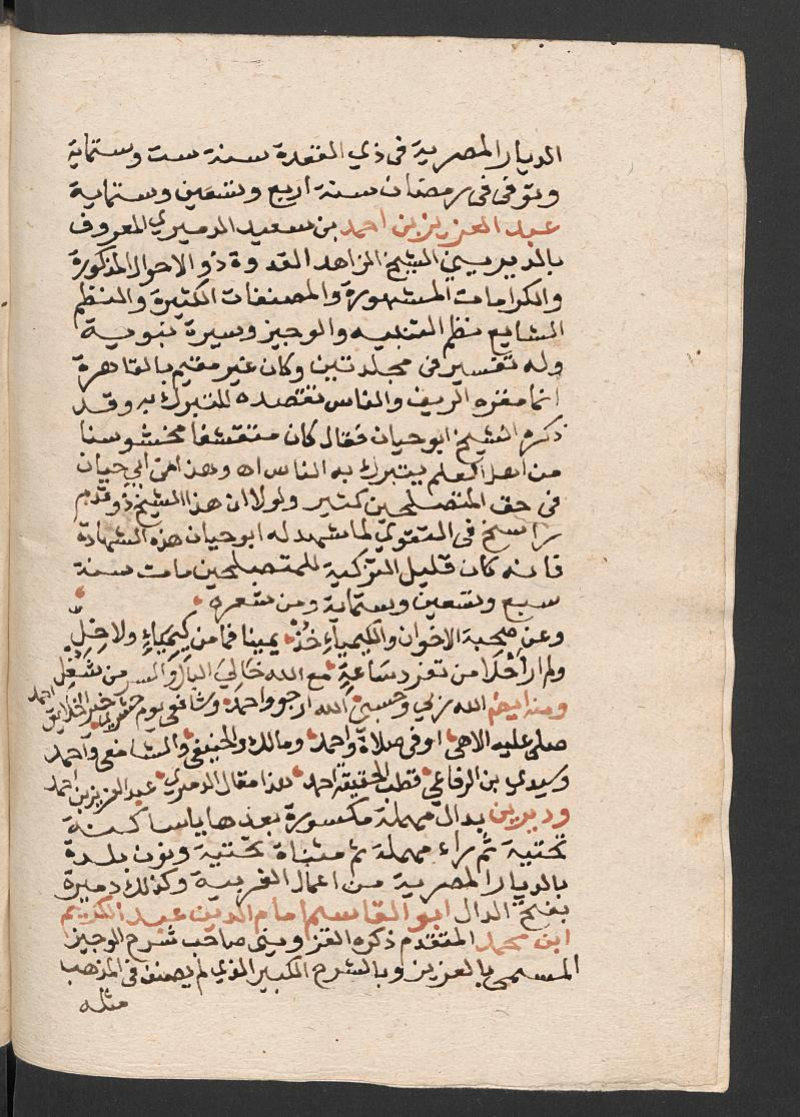 الديار المصرية فى ذي القعدة سنة ست وستماية
وتوفى فى رمضان سنة اربع وتسعين وستماية
عبد العزيز بن احمد بن سعيد الدميري المعروف
بالديريني الشيخ الزاهد القدوة ذو الاحوال المذكورة
والكرامات المشهورة والمصنفات الكثيرة والنظم
الشايع نظم التنبيه والوجيز وسيرة نبوية
وله تفسير فى مجلدتين وكان غير مقيم بالقاهرة
انما مقره الريف والناس تقصده للتبرك به وقد
ذكره الشيخ ابو حيان فقال كان متقشفا مخشوشنا
من اهل العلم يتبرك به الناس اه وهذا من ابي حيان
فى حق المتصلحين كثير ولولا ان هذا الشيخ ذو قدم
راسخ فى التقوي لما شهد له ابو حيان هذه الشهادة
فانه كان قليل التزكية للمتصلحين مات سنة
سبع وتسعين وستماية ومن شعره
وعن صحبة الاخوان والكيمياء خذ يمينا فما من كيمياء ولا خل
ولم ار احلا من تفرد ساعة مع الله خالي البال والسر من شغل
ومنه ايضا الله ربي وحسبي الله ارجو واحمد وشافعى يوم حشري خير الخلايق احمد
صلى عليه الاهى اوفى صلاة واحمد ومالك والحنيفى والشافعى واحمد
وسيدي بن الرفاعي قطب الحقيقة احمد هذا مقال الدميري عبد العزيز بن احمد
وديرين بدال مهملة مكسورة بعدها يا ساكنة
تحتية ثم راء مهملة ثم مثناة تحتية ونون بلدة
بالديار المصرية من اعمال الغربية وكذلك دميرة
بفتح الدال ابو القاسم امام الدين عبد الكريم
ابن محمد المتقدم ذكره القزوينى صاحب شرح الوجيز
المسمى بالعزيز وبالشرح الكبير الذي لم يصنف فى المذهب
مثله